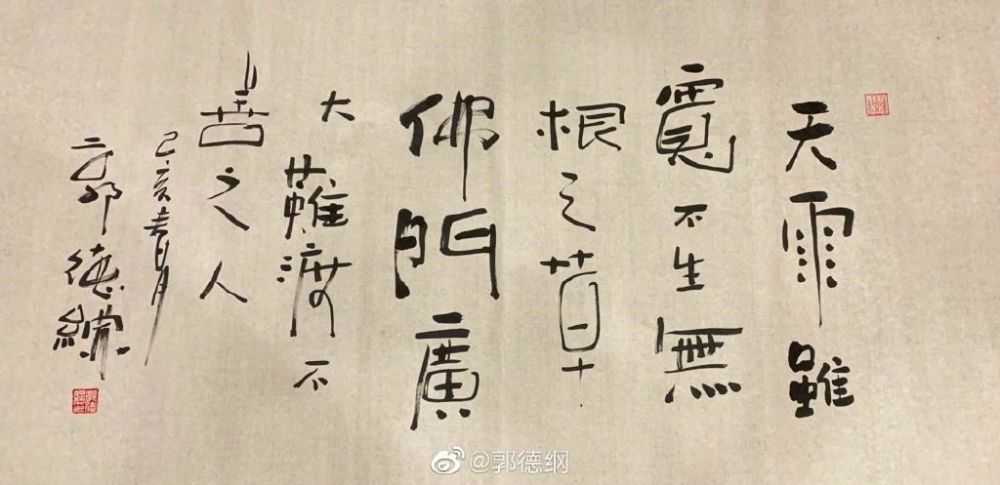 天雨雖
寬不生無
根之草
佛門廣
大難渡不
善之人
己亥春月
郭德綱
@郭德纲